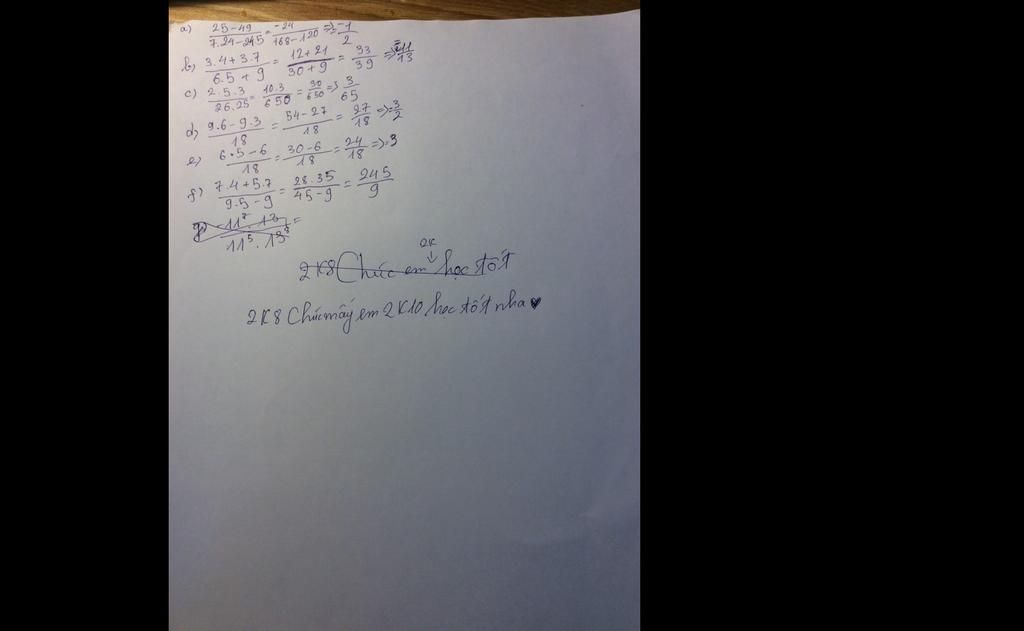 a) 25-49/7.24-245 = -24/168-120 => -1/2
b) 3.4+3.7/6.5+9 = 12+21/30+9 = 33/39 => 11/13
c) 2.5.3/26.25 = 10.3/650 = 30/650 => 3/65
d) 9.6-9.3/18 = 54-27/18 = 27/18 => 3/2
e) 6.5-6/18 = 30-6/18 = 24/18 => 3
f) 7.4+5.7/9.5-9 = 28.35/45-9 = 245/9
2K
2K8 Chúc em học tốt
2K8 Chúc mấy em 2K10 học tốt nha ♥